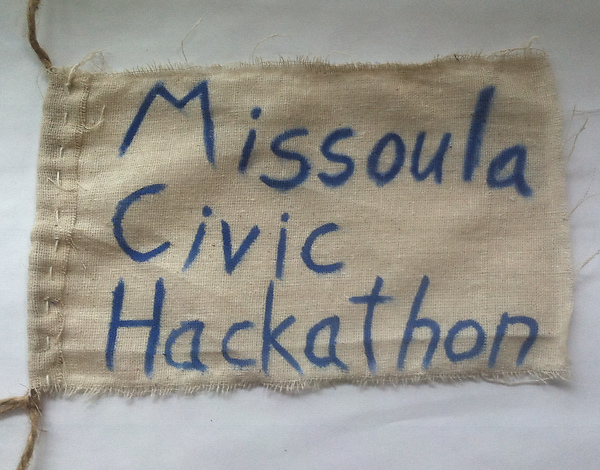 Missoula
Civic
Hackathon